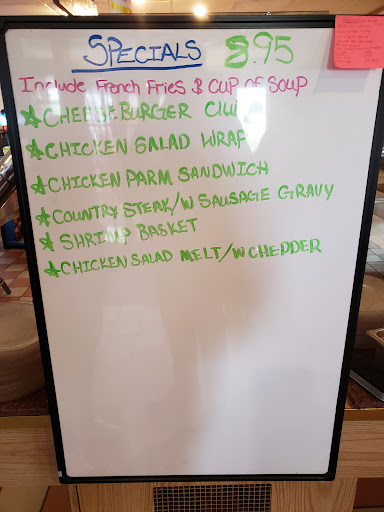 SPECIALS 8.95
Include French Fries & CUP OF SOUP
CHEESEBURGER CLUB
CHICKEN SALAD WRAP
CHICKEN PARM SANDWICH
COUNTRY STEAK/W SAUSAGE GRAVY
SHRIMP BASKET
CHICKEN SALAD MELT/W CHEDDER